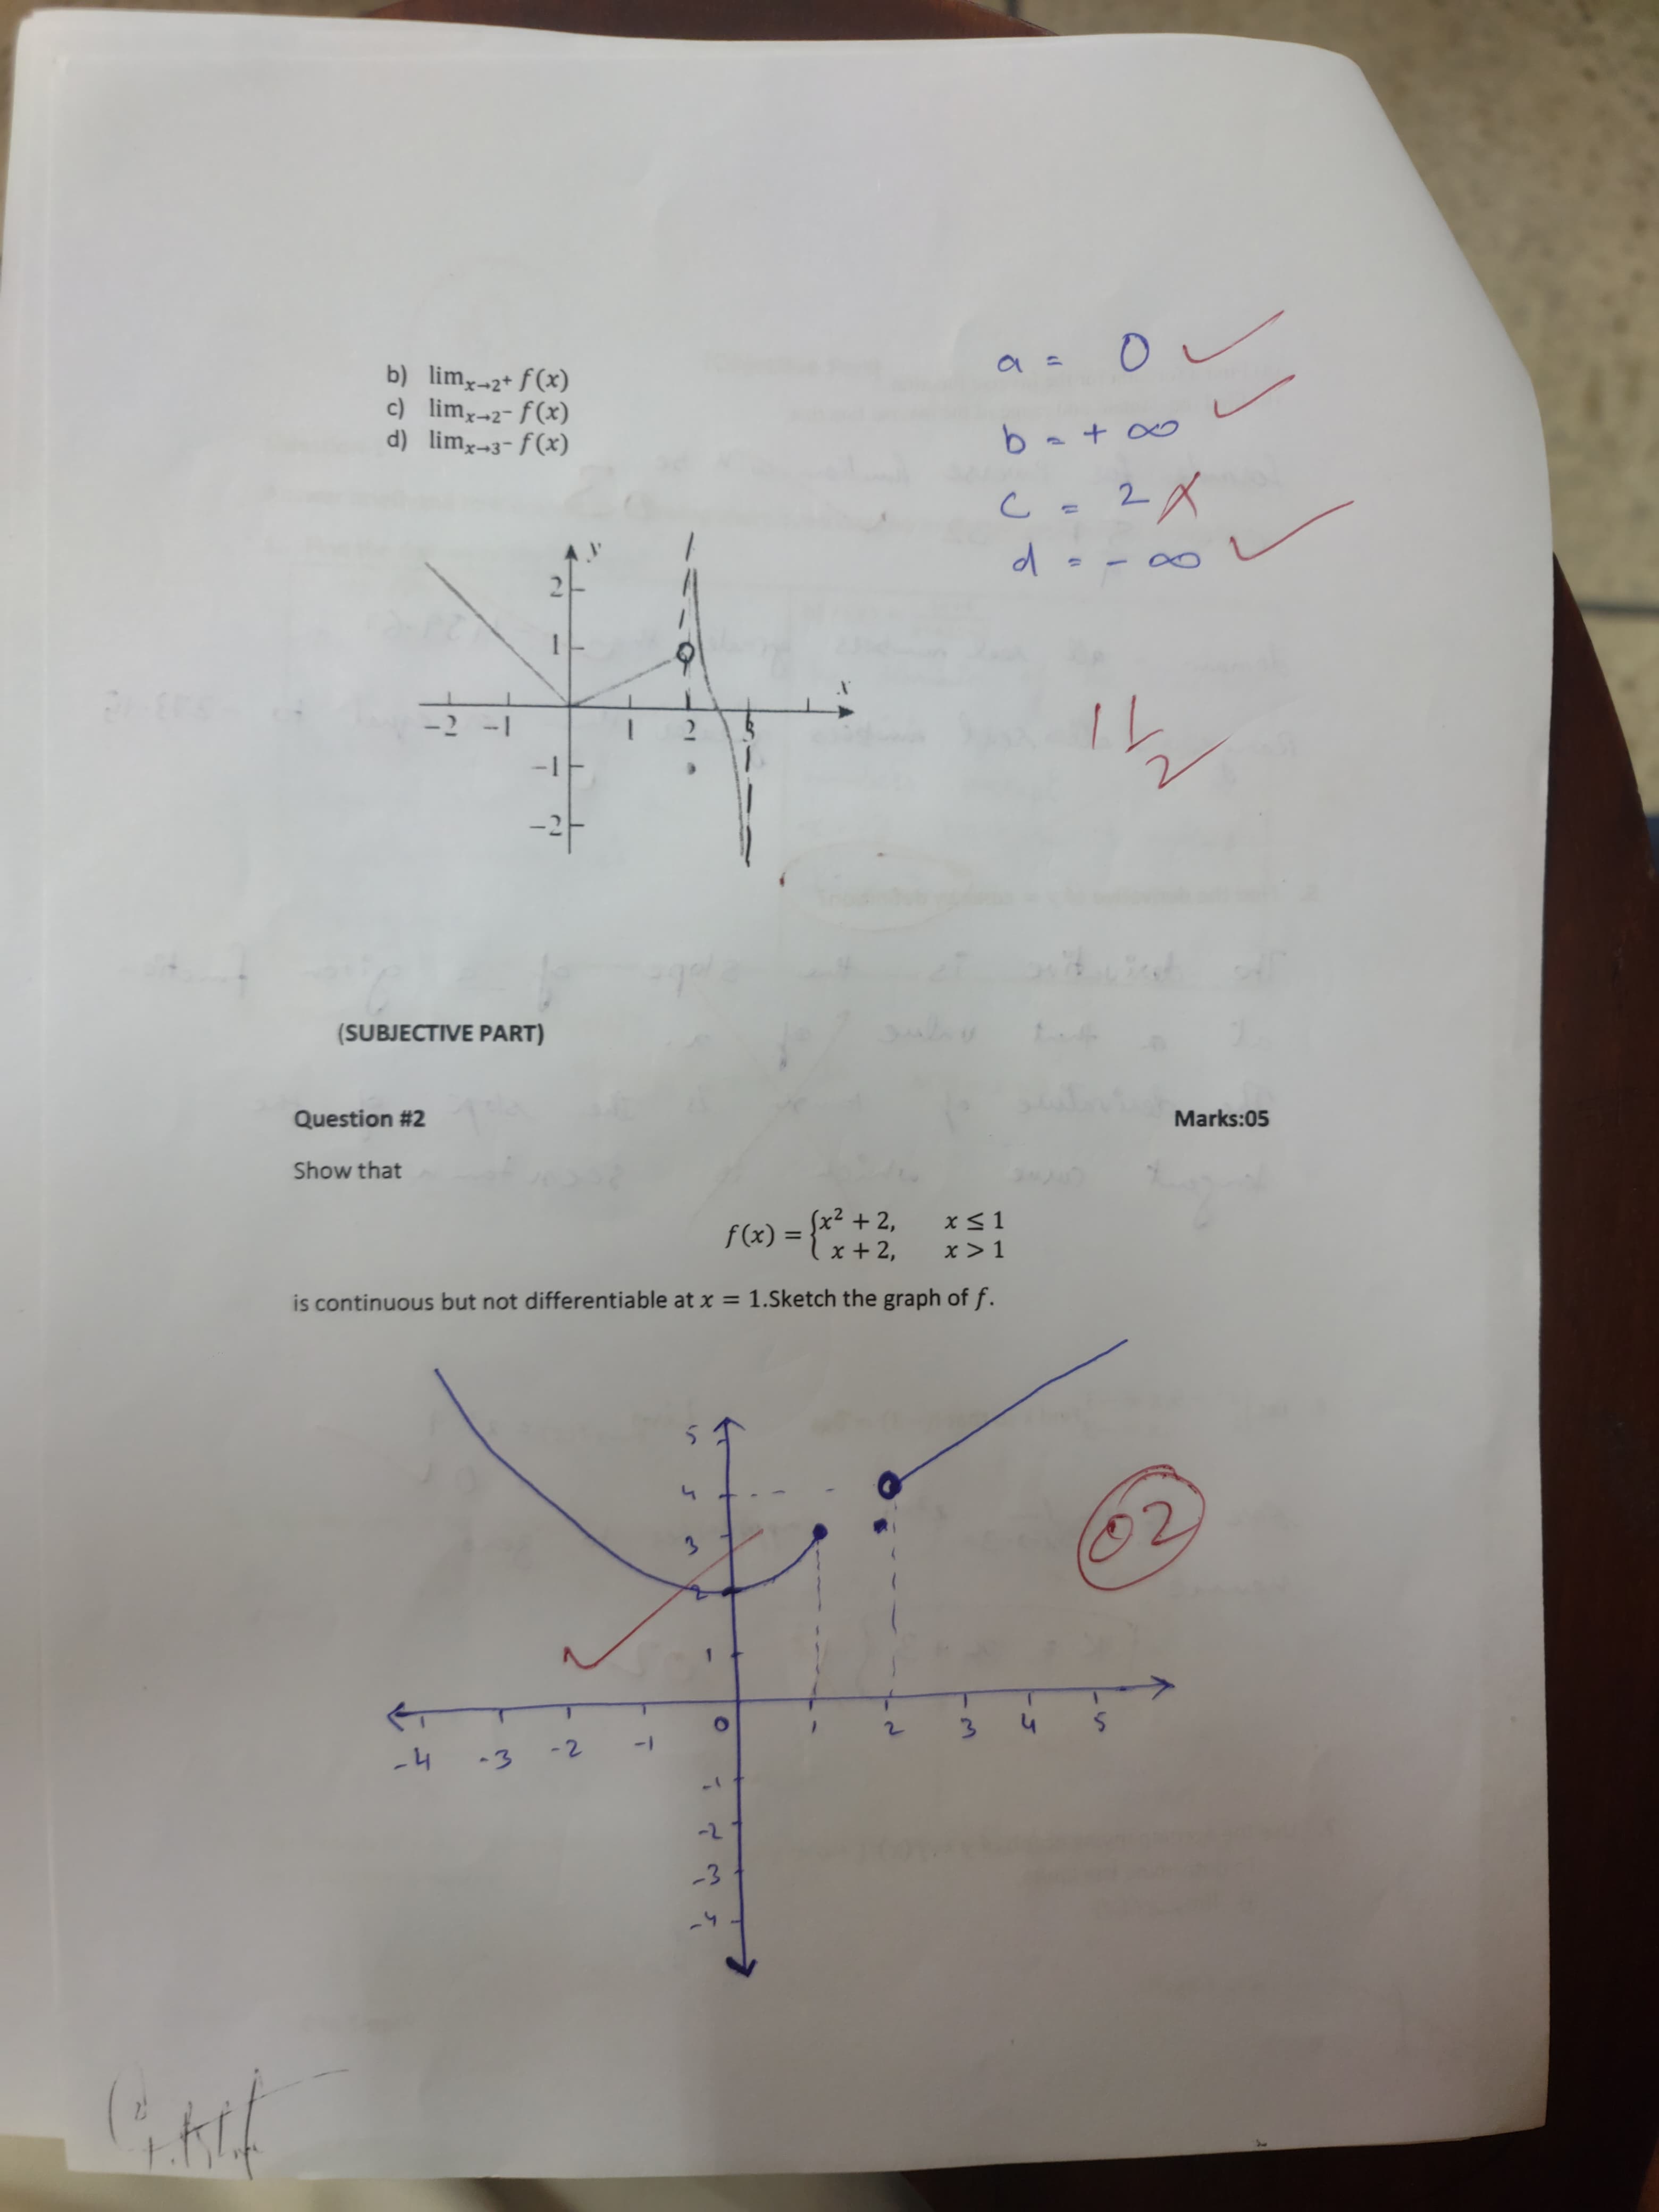 b) lim x→2⁺ f(x)
c) lim x→2⁻ f(x)
d) lim x→3⁻ f(x)
a = 0
b = + ∞
c = 2
d = - ∞
y
2
1
x
-2 -1 1 2 3
-1
-2
1 1/2
(SUBJECTIVE PART)
Question #2 Marks:05
Show that
f(x) = { x² + 2, x ≤ 1
x + 2, x > 1
is continuous but not differentiable at x = 1.Sketch the graph of f.
5
4
3
2
1
02
-4 -3 -2 -1 0 1 2 3 4 5
-1
-2
-3
-4